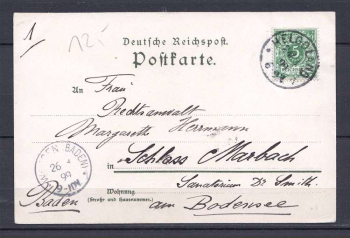 1
12,-
Deutsche Reichspost.
Postkarte.
HELGOLAND
5
An
Frau
Rechtsanwalt
Margarethe Herrmann
in Schloss Marbach
Wohnung
(Straße und Hausnummer)
Sanatorium Dr. Smith.
Baden
am Bodensee
(BADEN)
26
99